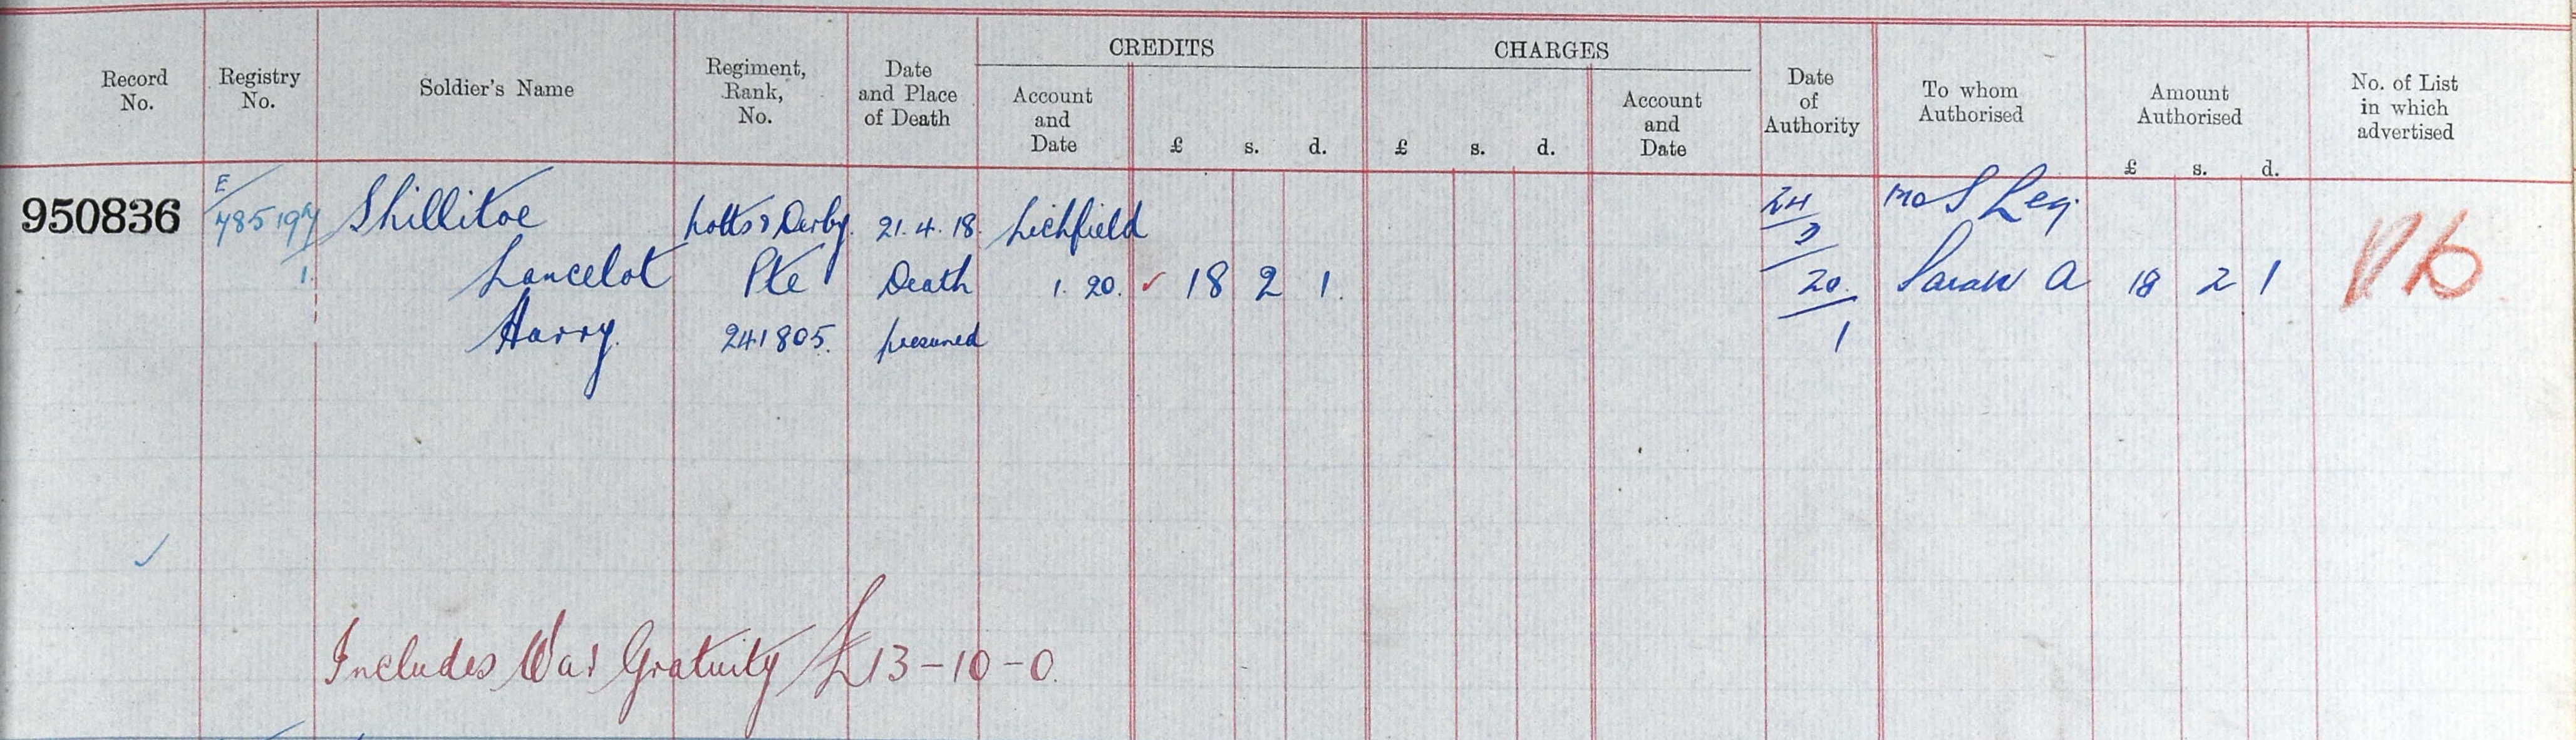 CREDITS CHARGES
Record No. Registry No. Soldier's Name Regiment, Rank, No. Date and Place of Death Account and Date £ s. d. £ s. d. Account and Date Date of Authority To whom Authorised Amount Authorised £ s. d. No. of List in which advertised
950836 E/ Shillitoe Notts & Derby. 21.4.18. Lichfield 24 Mo S Leg.
1. Lancelot Pte Death 1. 20. ✓ 18 2 1. 20. Sarah A 18 2 1
Harry. 241805. presumed 1
✓
Includes War Gratuity £13-10-0.